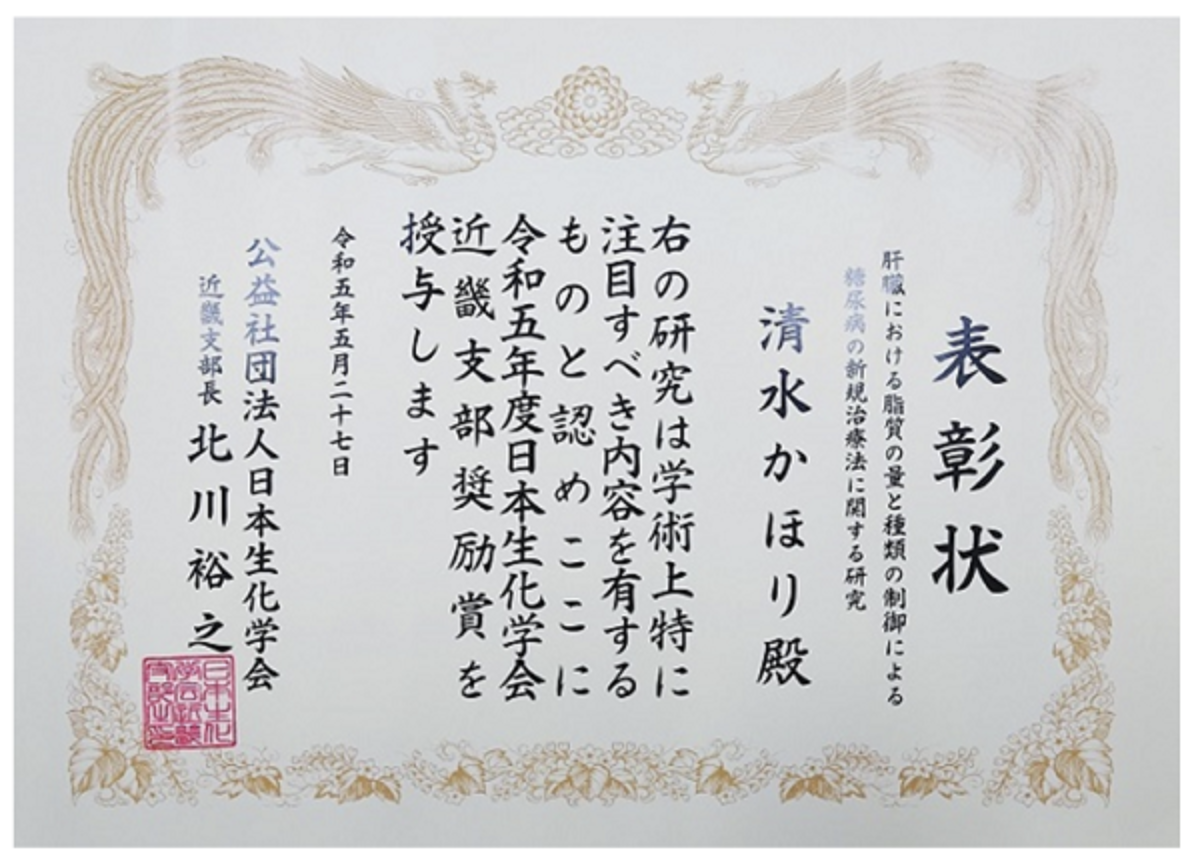 表彰状
肝臓における脂質の量と種類の制御による
糖尿病の新規治療法に関する研究
清水かほり殿
右の研究は学術上特に
注目すべき内容を有する
ものと認めここに
令和五年度日本生化学会
近畿支部奨励賞を
授与します
令和五年五月二十七日
公益社団法人日本生化学会
近畿支部長 北川裕之